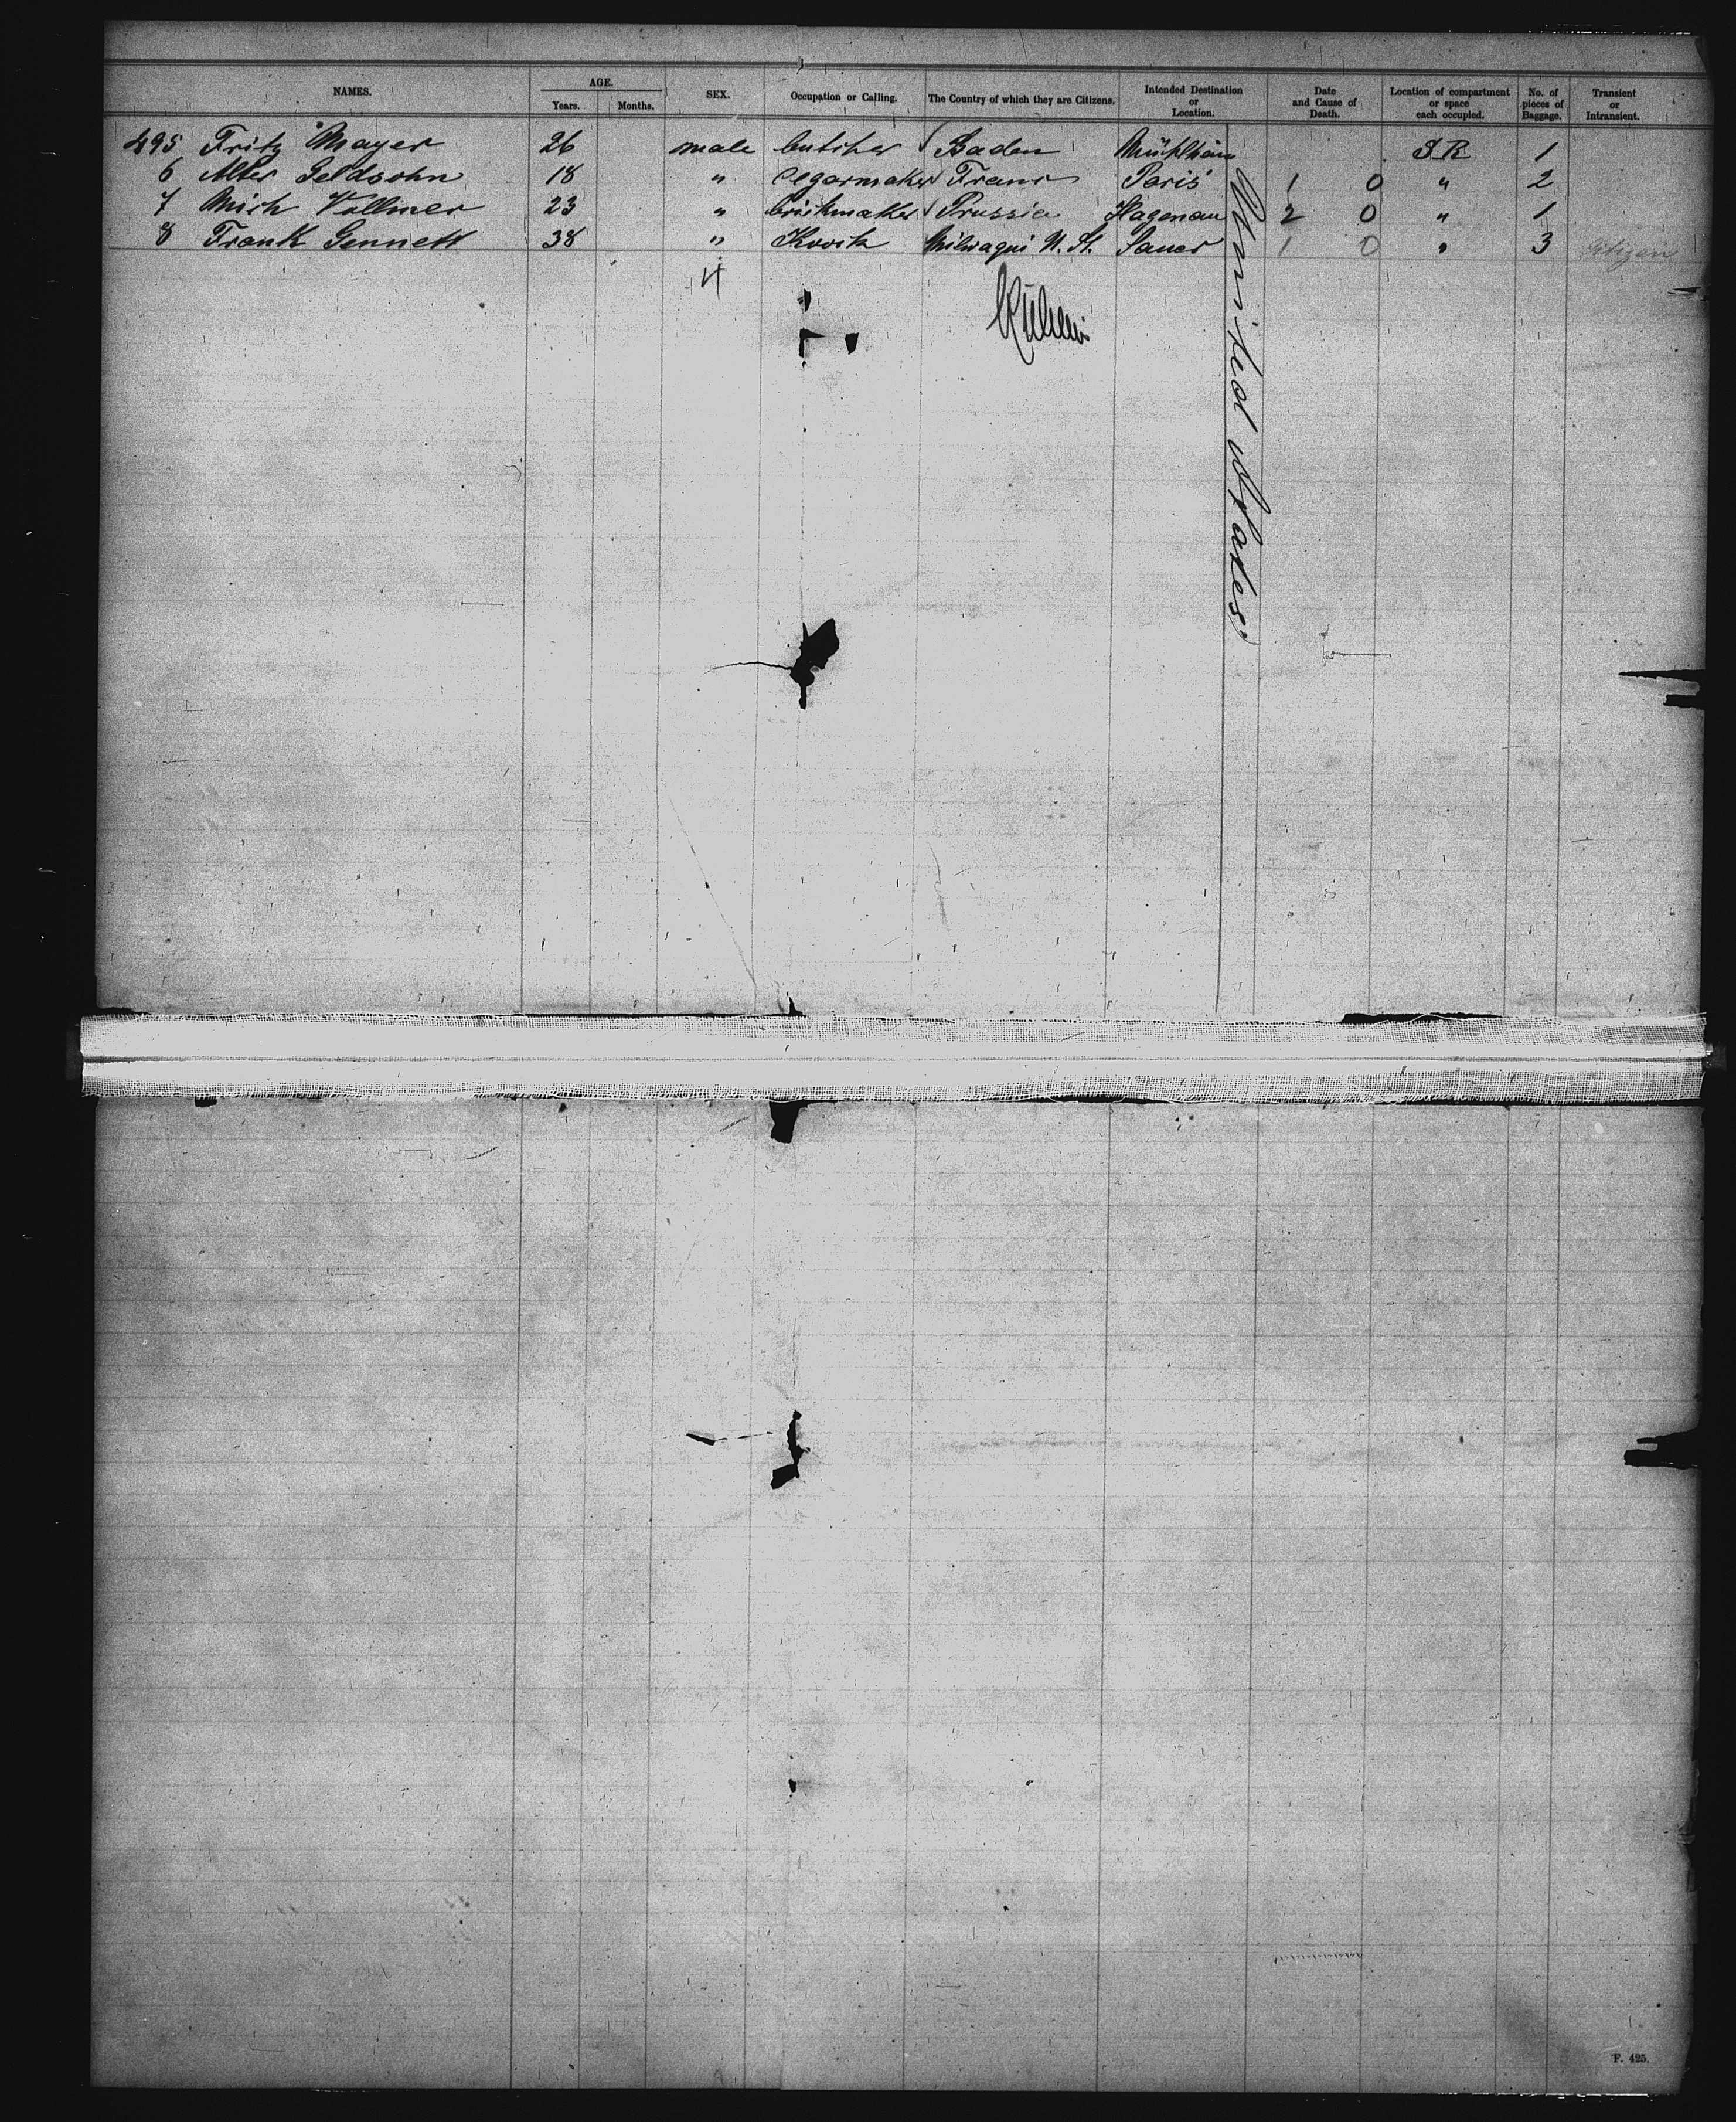 NAMES. AGE. Years. Months. SEX. Occupation or Calling. The Country of which they are Citizens. Intended Destination or Location. Date and Cause of Death. Location of compartment or space each occupied. No. of pieces of Baggage. Transient or Intransient.
495 Fritz Mayer 26 male butcher Baden S R 1
6 Alter Geldsohn 18 " Cegarmaker Franc Paris 1 0 " 2
7 Mich Vollmer 23 " brickmaker Prussia Hagenau 2 0 " 1
8 Frank Gennett 38 " Milwaqui N. St. 1 0 " 3 Citizen
4
United States
F. 425.